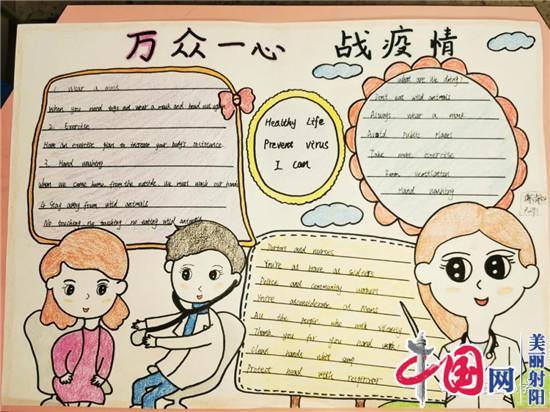 万众一心 战疫情
1. Wear a mask
When you need to go out wear a mask and
2. Exercise
Have an exercise plan to increase your body's resistance.
3. Hand washing
When we come home from the outside we must wash our hands
4. Stay away from wild animals
No touching no no eating wild animals
Healthy life
Prevent virus
I can
What are we doing?
Don't eat wild animals
Always wear a mask
Avoid Public Places
Take more exercise
Room ventilation
Hand washing
Doctors and nurses
You're as brave as soldiers
Police and community workers
You're as considerate as Moms
All the people who work silently
Thank you for you hard work
Clean hands with soap
Protect hand with
中国网
美丽射阳